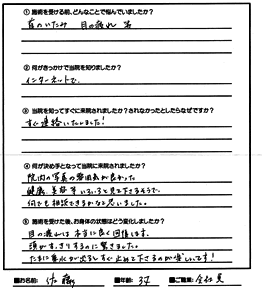 ① 施術を受ける前、どんなことで悩んでいましたか?
首のいたみ 目の疲れ
② 何がきっかけで当院を知りましたか?
インターネットで。
③ 当院を知ってすぐに来院されましたか?されなかったとしたらなぜですか?
すぐ連絡いたしました!
④ 何が決め手となって当院に来院されましたか?
院内の写真の雰囲気が良かった。
健康、美容等いろいろと見て下さるそうで、
何でも相談できるかなと思いました。
⑤ 施術を受けた後、お身体の状態はどう変化しましたか?
目の疲れは本当に良く回復します。
頭がすっきりするのに驚きました。
たまに鼻水が出るとすぐ止めて下さるのが嬉しいです!
■お名前: 佐藤 ■年齢: 34 ■ご職業: 会社員